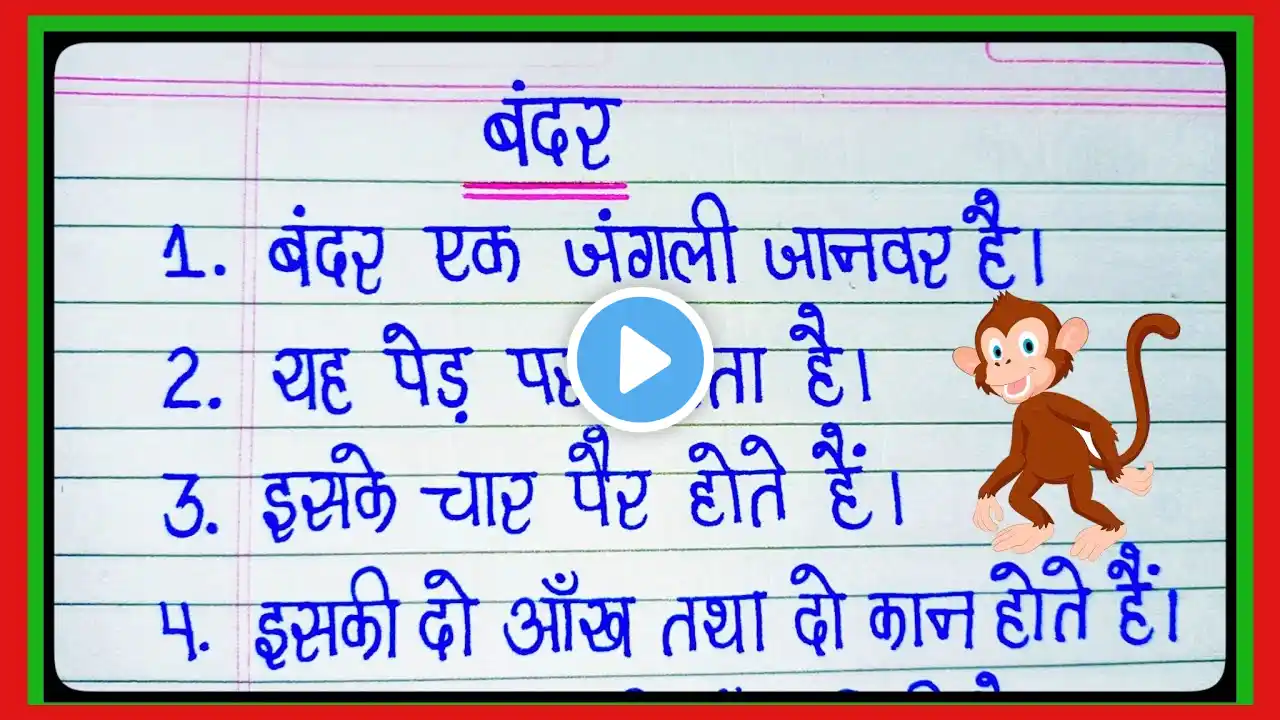 बंदर
1. बंदर एक जंगली जानवर है।
2. यह पेड़ है।
3. इसके चार पैर होते हैं।
4. इसकी दो आँख तथा दो कान होते हैं।